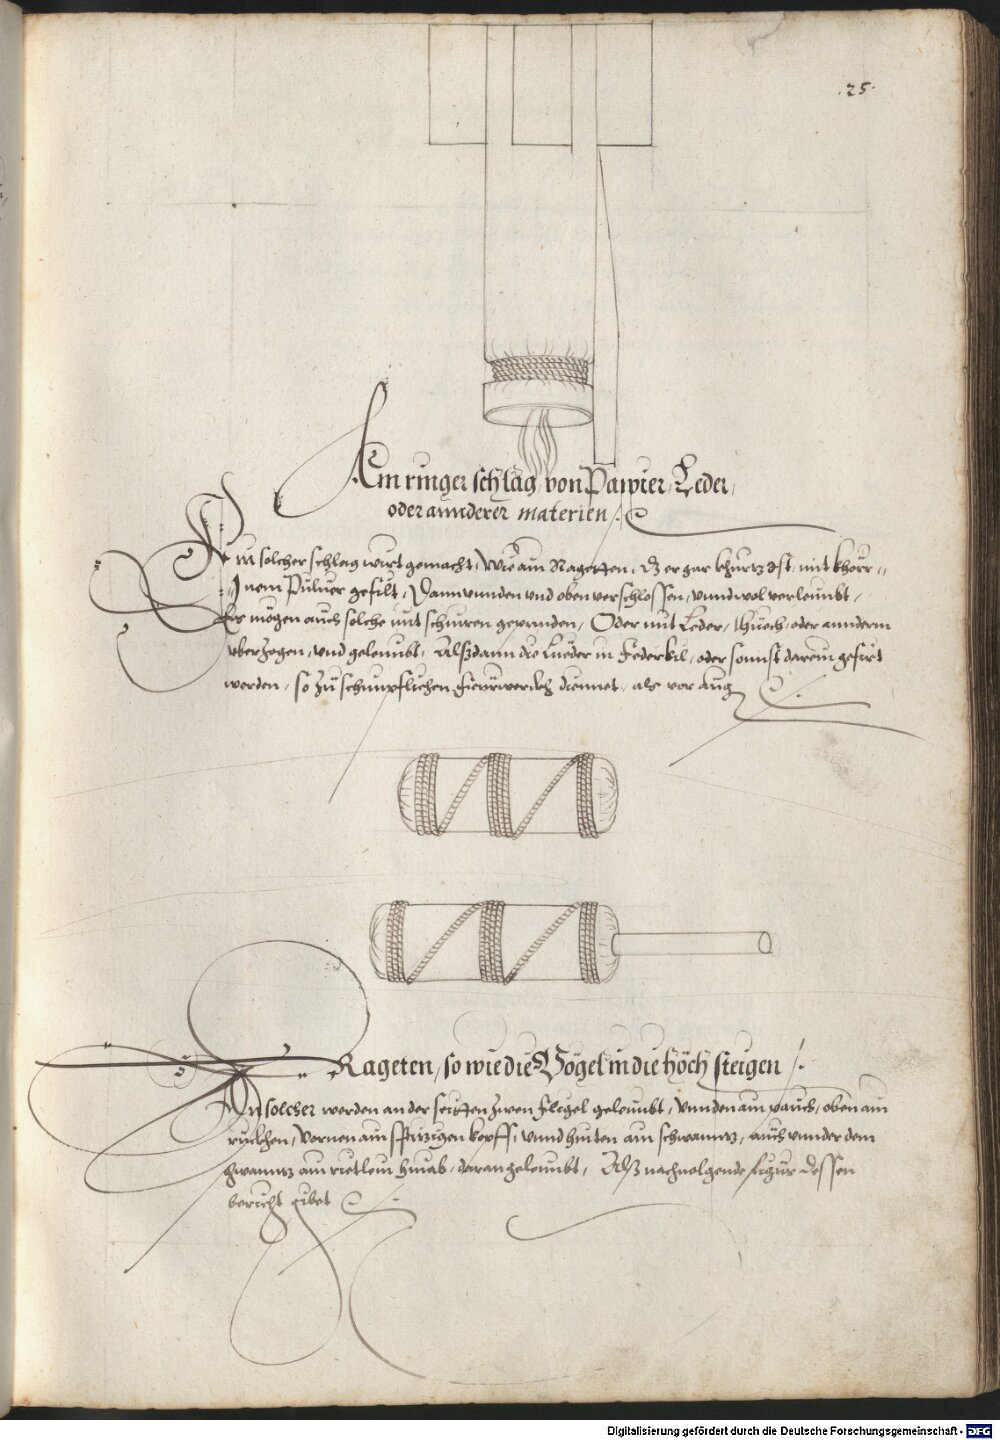 .25.
Ein ringer schlag von Papier, Leder,
oder annderer materien /.
Ein solcher schlag wirt gemacht, Wie ain Rageten, Dz er gar khurtz Ist, mit khörr„
„Inem Puluer gefilt, Dann unnden und oben verschlossen, unnd wol verleimbt,
Es mögen auch solche mit schnuren gepunden, Oder mit Leder, thuech, oder annderm
uberzogen, und geleimbt, Alßdann die Lueder in Federkil, oder sonnst darein gefirt
werden, so zu schimpflichen Feurwerckhen diennet, als vor aug
Rageten, so wie die Vögel in die höch steigen /.
An solcher werden an der seitten zwen fligel geleimbt, unnden ain pauch, oben ain
ruckhen, vornen ain spitzigen kopff, unnd hinten ain schwanntz, auch unnder dem
schwanntz ain rietlein hinab, daran geleimbt, Alß nachuolgende figur dessen
bericht gibet
Digitalisierung gefördert durch die Deutsche Forschungsgemeinschaft - DFG